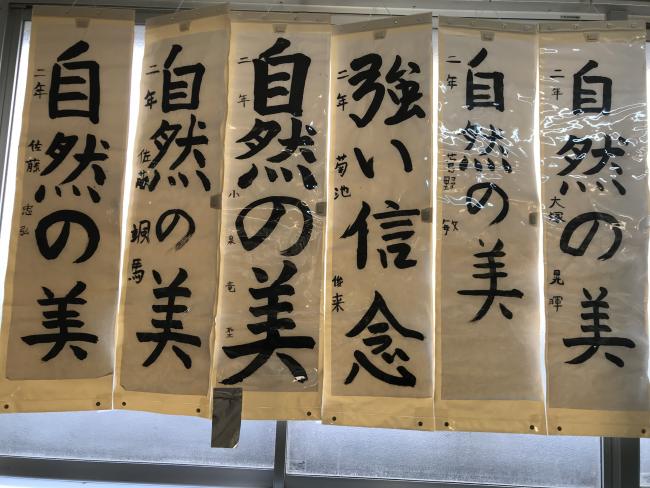 自然の美
二年 大塚 晃暉
自然の美
二年 菅野 敏
強い信念
二年 菊池
自然の美
二年 小泉 竜聖
自然の美
二年 佐藤
自然の美
二年 佐藤 忠弘